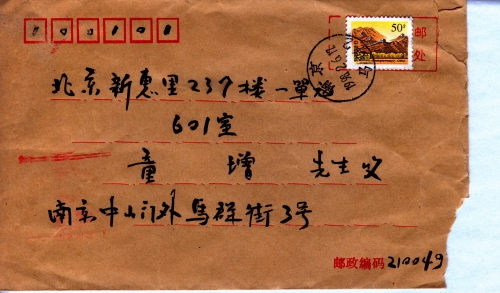 100101
50分
邮
处
北京新惠里237楼一單元
601室
童增 先生收
南京中山门外馬群街3号
邮政编码 210049